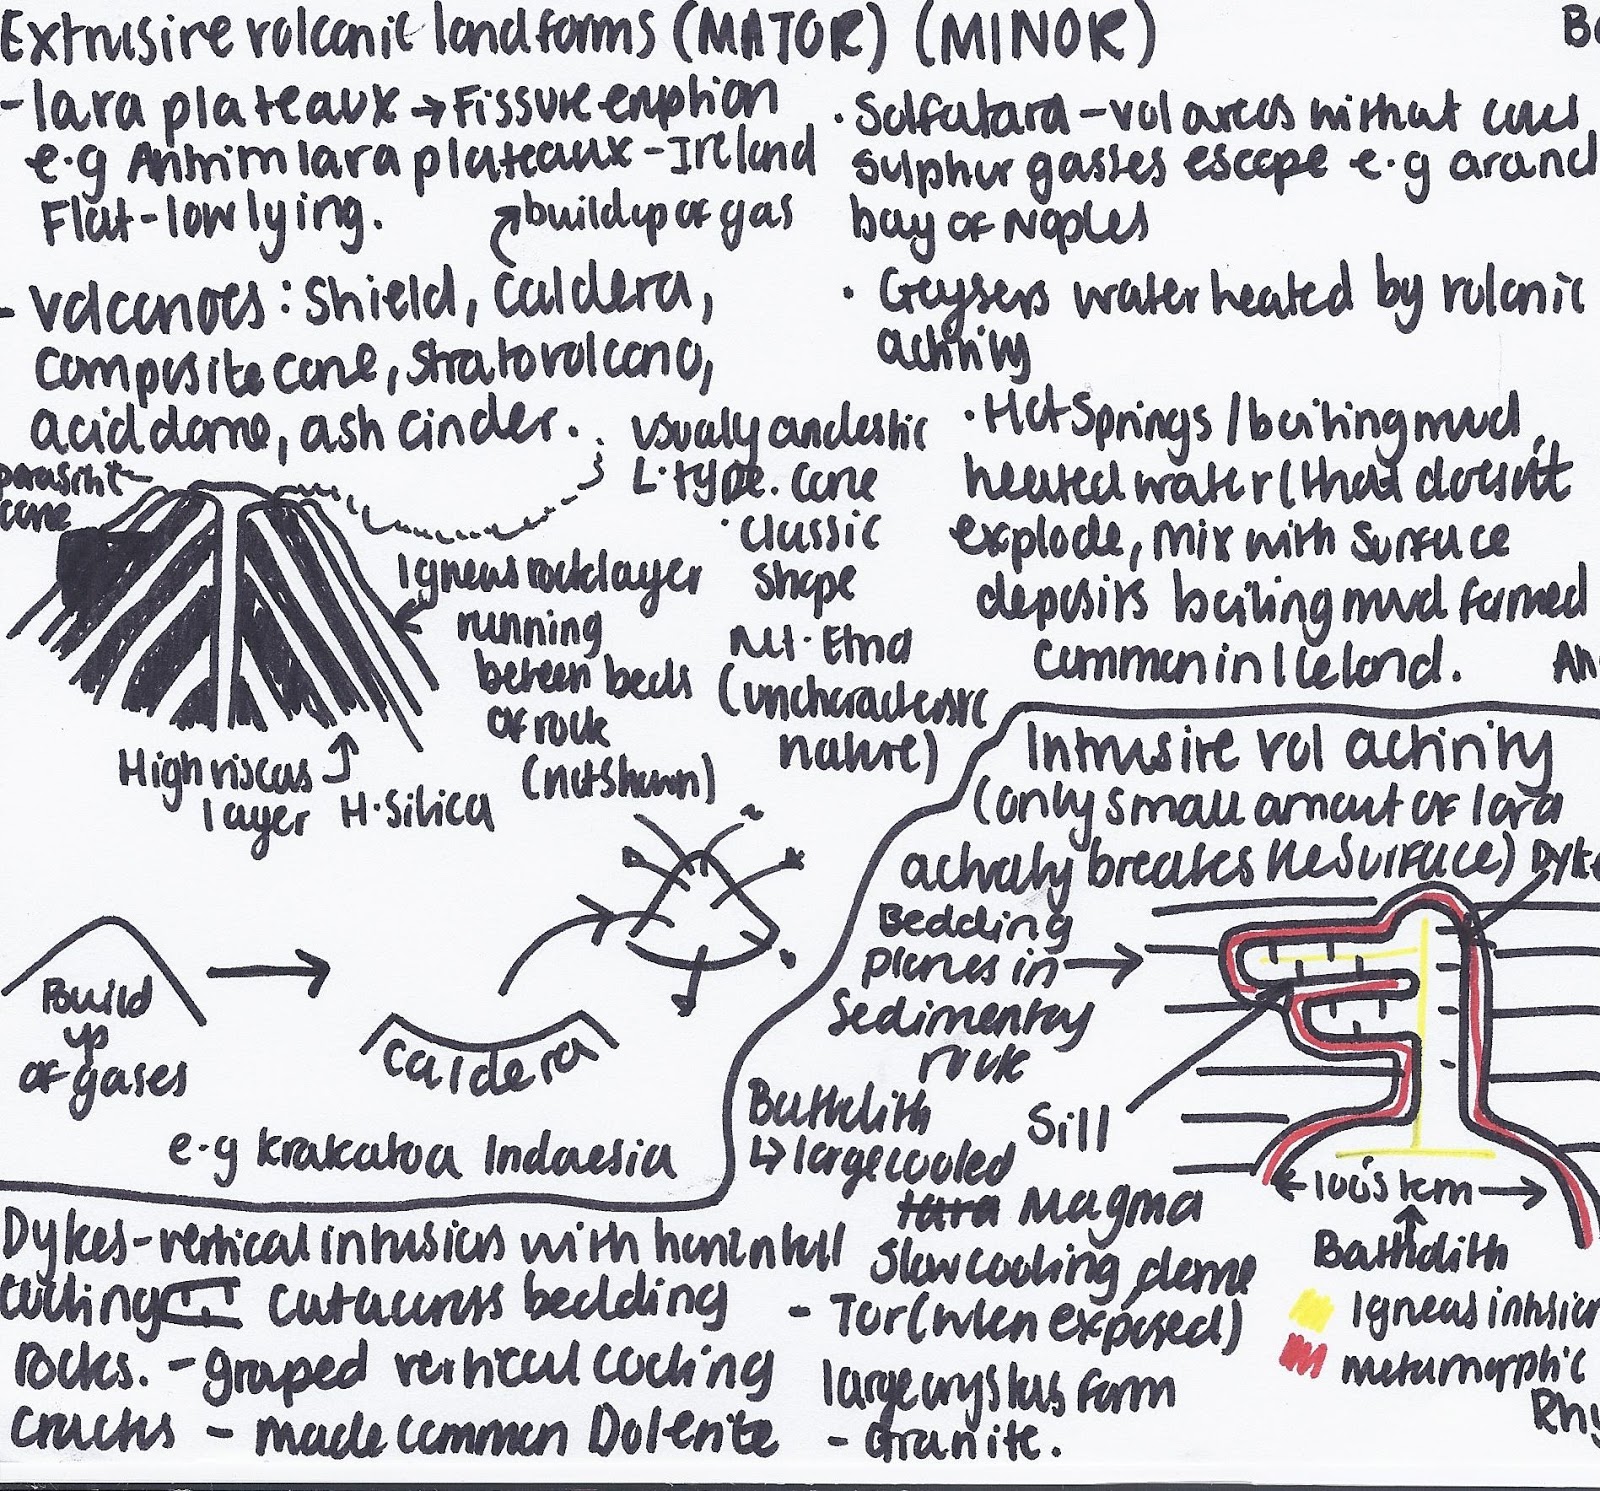 Extrusive volcanic landforms (MAJOR) (MINOR)
- lava plateaux → Fissure eruption
e.g Antrim lava plateaux - Ireland
Flat - low lying.
buildup of gas
- volcanoes: Shield, caldera,
composite cone, stratovolcano,
acid dome, ash cinder.
parasitic
cone
usually andestic
L. type. cone
· classic
shape
Mt. Etna
(uncharacteristic
nature)
Igneous rock layer
running
between beds
of rock
(not shown)
High viscous
layer
H. silica
Build
up
of gases
caldera
e.g Krakatoa Indoesia
· Solfatara - vol areas without cones,
Sulphur gasses escape e.g around
bay of Naples
· Geysers water heated by volcanic
activity
· Hot Springs / boiling mud,
heated water (that doesn't
explode, mix with surface
deposits boiling mud formed
common in Iceland.
Intrusive vol activity
(only small amout of lava
actually breaks the surface)
Bedding
planes in
Sedimentary
rock
Sill
Bathdith
↳ large cooled
lava Magma
slow cooling, dome
- Tor (when exposed)
large crystals form
- Granite.
100's km
Bathdith
Igneas intrusion
metamorphic
Dykes - vertical intrusions with horizontall
cooling cut across bedding
rocks. - graped vertical cooling
cracks - made common Dolerite